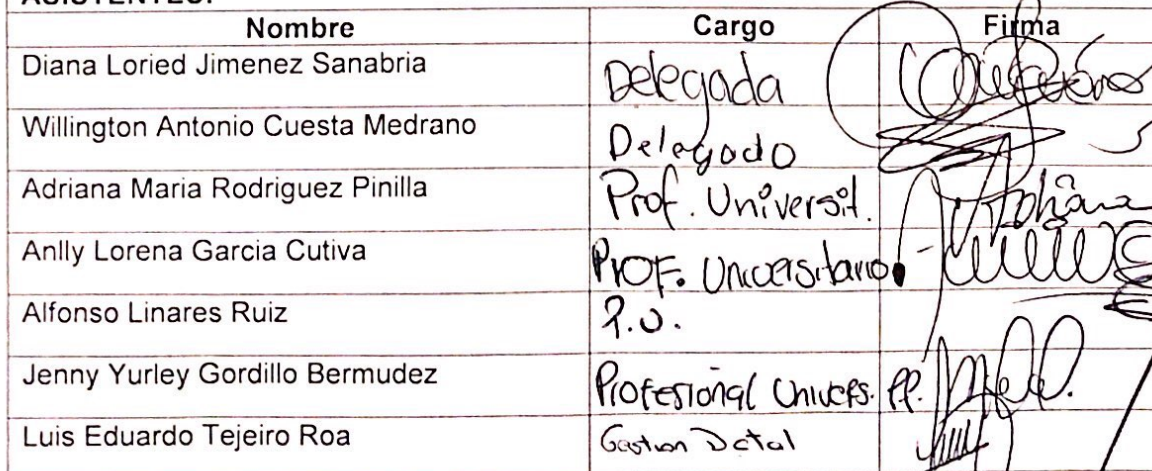 ASISTENTES:
Nombre Cargo Firma
Diana Loried Jimenez Sanabria Delegada
Willington Antonio Cuesta Medrano Delegado
Adriana Maria Rodriguez Pinilla Prof. Universit.
Anlly Lorena Garcia Cutiva Prof. Universitario
Alfonso Linares Ruiz P.U.
Jenny Yurley Gordillo Bermudez Profesional Univers.
Luis Eduardo Tejeiro Roa Gestion